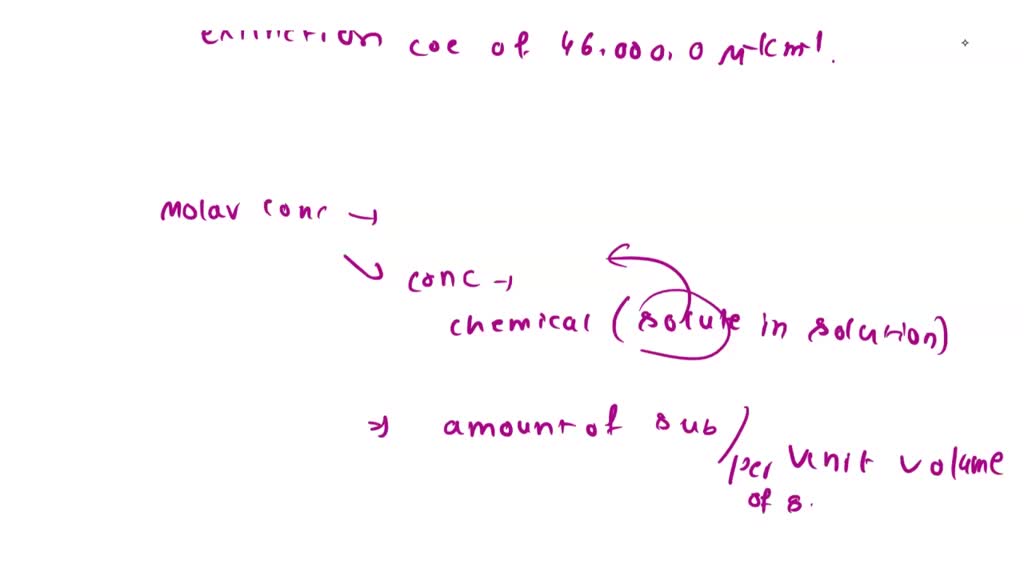 extinction coe of 46,000.0 M-1cm-1.
Molar conc →
conc →
chemical (solute in solution)
⇒ amount of sub/
per unit volume
of s.